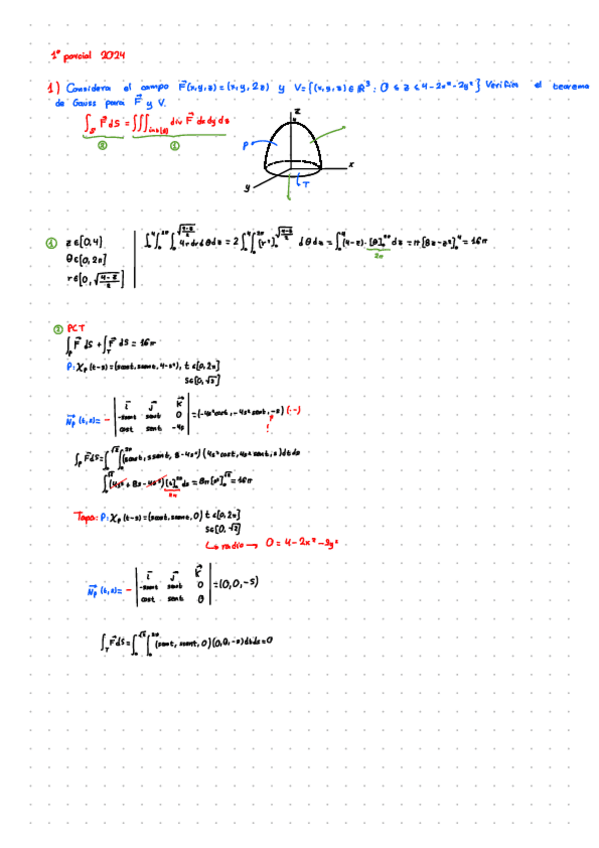 1º parcial 2024
1) Considera el campo F⃗(x,y,z)=(x,y,2z) y V={(x,y,z)∈ℝ³: 0≤z≤4-2x²-2y²} Verifica el teorema
de Gauss para F⃗ y V.
∫_S F⃗ dS = ∭_int(S) div F⃗ dx dy dz
② ①
z
P
T
x
y
① z∈[0,4] ∫₀⁴∫₀^2π∫₀^√((4-z)/2) 4r dr dθ dz = 2∫₀⁴∫₀^2π [r²]₀^√((4-z)/2) dθ dz = ∫₀⁴(4-z)·[θ]₀^2π dz = π[8z-z²]₀⁴ = 16π
θ∈[0,2π] 2π
r∈[0,√((4-z)/2)]
② PCT
∫_P F⃗ dS + ∫_T F⃗ dS = 16π
P: χ_P(t-s)=(s cost, s sent, 4-s²), t∈[0,2π]
s∈[0,√2]
N⃗_P(t,s)= - | i⃗ j⃗ k⃗ | -s sent s cost 0 | cost sent -4s | =(-4s²cost, -4s²sent, -s) (·-)
!
∫_P F⃗ dS = ∫₀^√2∫₀^2π (s cost, s sent, 8-4s²)(4s²cost, 4s²sent, s) dt ds
∫₀^√2 (4s³+8s-4s³)[t]₀^2π ds = 8π[s²]₀^√2 = 16π
2π
Tapa: P: χ_P(t-s)=(s cost, s sent, 0) t∈[0,2π]
s∈[0,√2]
↳ radio → 0=4-2x²-2y²
N⃗_P(t,s)= - | i⃗ j⃗ k⃗ | -s sent s cost 0 | cost sent 0 | =(0,0,-s)
∫_T F⃗ dS = ∫₀^√2∫₀^2π (s cost, s sent, 0)(0,0,-s) dt ds = 0